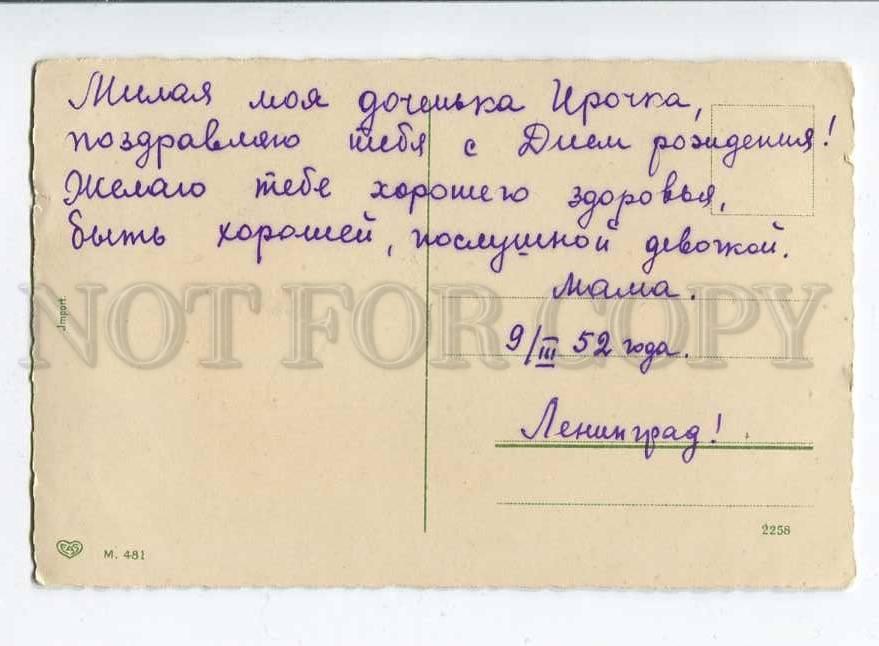 Милая моя доченька Ирочка,
поздравляю тебя с Днем рождения!
Желаю тебе хорошего здоровья,
быть хорошей, послушной девочкой.
Мама.
9/III 52 года.
Ленинград!
Jmport.
NOT FOR COPY
EAS
M. 481
2258